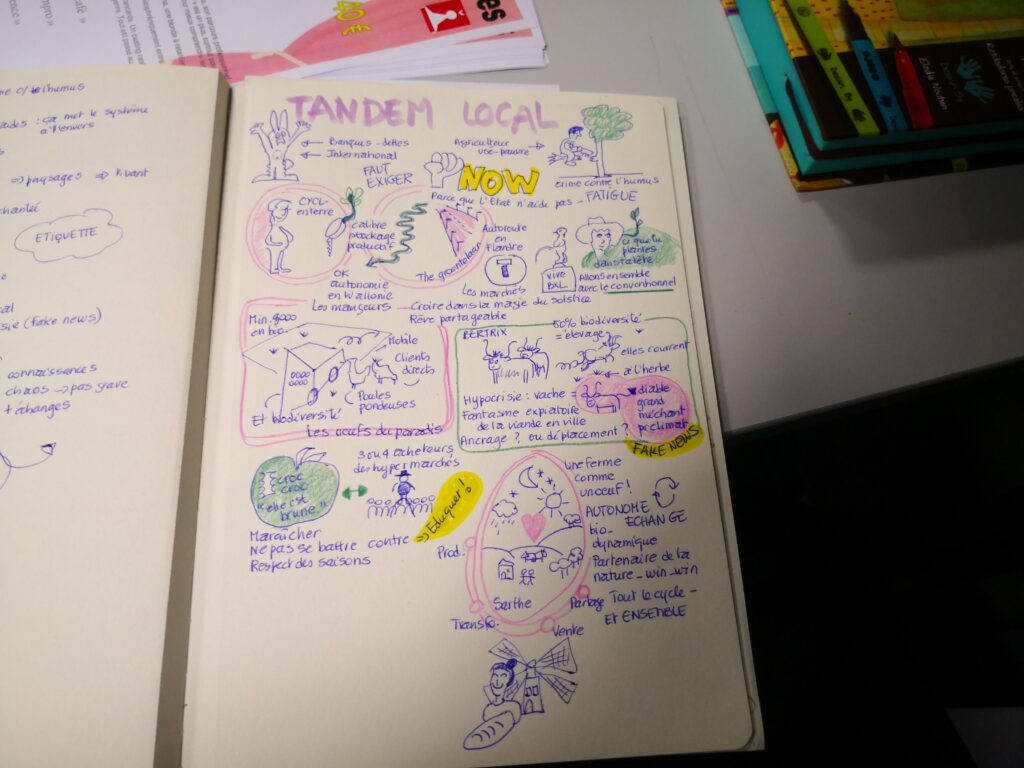 les
40 €
café »
mpro »
rence »
c/ l'humus
aides : ça met le système
à l'envers
=> paysages => Vivant
ETIQUETTE
(fake news)
connaissances
chaos -> pas grave
+ échanges
TANDEM LOCAL
Banques - dettes
International
Agriculteur
FAUT
EXIGER
NOW
crime contre l'humus
Parce que l'Etat n'aide pas - FATIGUE
CYCL-
enterre
calibre
stockage
productif
OK
autonomie
en Wallonie
Autoroute
en
Flandre
The groentelaar
Les marchés
VIVE
BXL
ce que tu
plantes
dans ta tête
Allons ensemble
avec le conventionnel
Les mangeurs - Croire dans la magie du solstice
Rêve partageable
Min. 9000
en bio.
Mobile
Clients
directs
Poules
pondeuses
Et biodiversité
Les oeufs du paradis
BERTRIX
50% biodiversité
= élevage
elles courent
à l'herbe
Hypocrisie : vache =
diable
grand
méchant
pr climat
Fantasme expiatoire
de la viande en ville
Ancrage ? ou déplacement ?
FAKE NEWS
croc
croc
"elle est
brune"
3 ou 4 acheteurs
des hypermarchés
Maraîcher
Ne pas se battre contre => Eduquer !
Respect des saisons
une ferme
comme
un oeuf !
AUTONOME
ECHANGE
bio-
dynamique
Partenaire de la
nature - win-win
Tout le cycle -
ET ENSEMBLE
Prod.
Sarthe
Partage
Transfo.
Vente